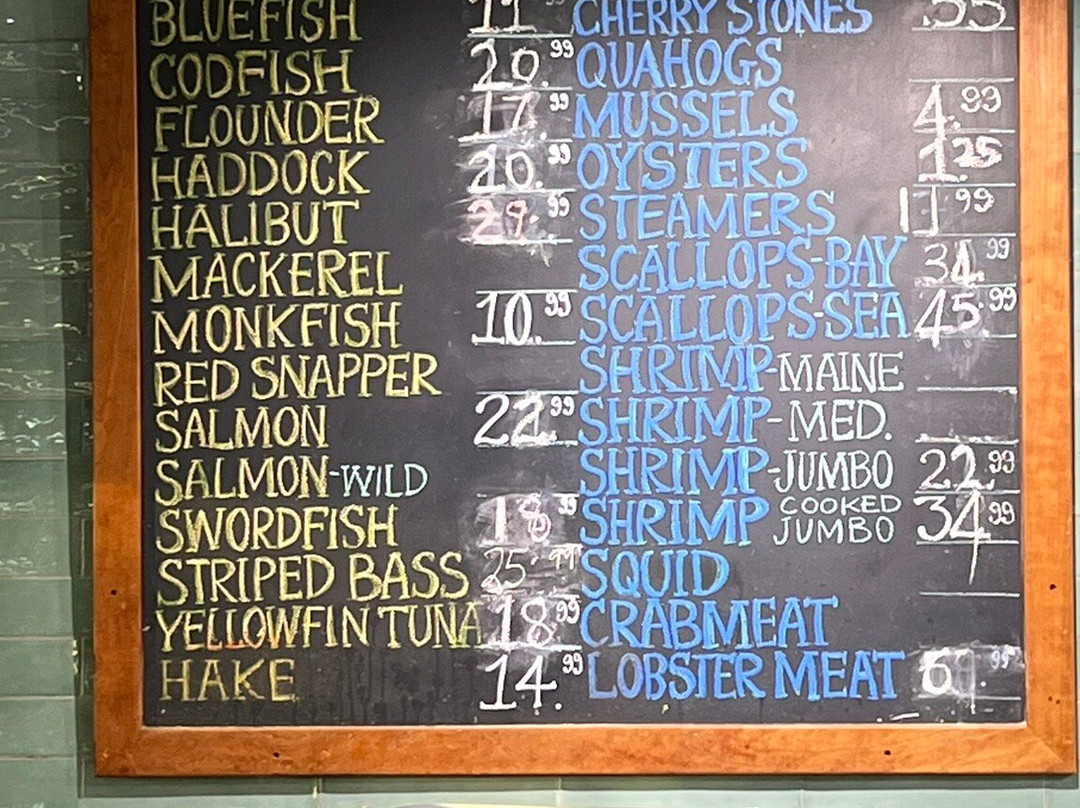 BLUEFISH 11.99
CODFISH 20.99
FLOUNDER 17.99
HADDOCK 20.99
HALIBUT 29.99
MACKEREL
MONKFISH 10.99
RED SNAPPER
SALMON 22.99
SALMON-WILD
SWORDFISH 18.99
STRIPED BASS 25.99
YELLOWFIN TUNA 18.99
HAKE 14.99
CHERRY STONES .55
QUAHOGS
MUSSELS 4.99
OYSTERS 1.25
STEAMERS 11.99
SCALLOPS-BAY 34.99
SCALLOPS-SEA 45.99
SHRIMP-MAINE
SHRIMP-MED.
SHRIMP-JUMBO 22.99
SHRIMP COOKED JUMBO 34.99
SQUID
CRABMEAT
LOBSTER MEAT